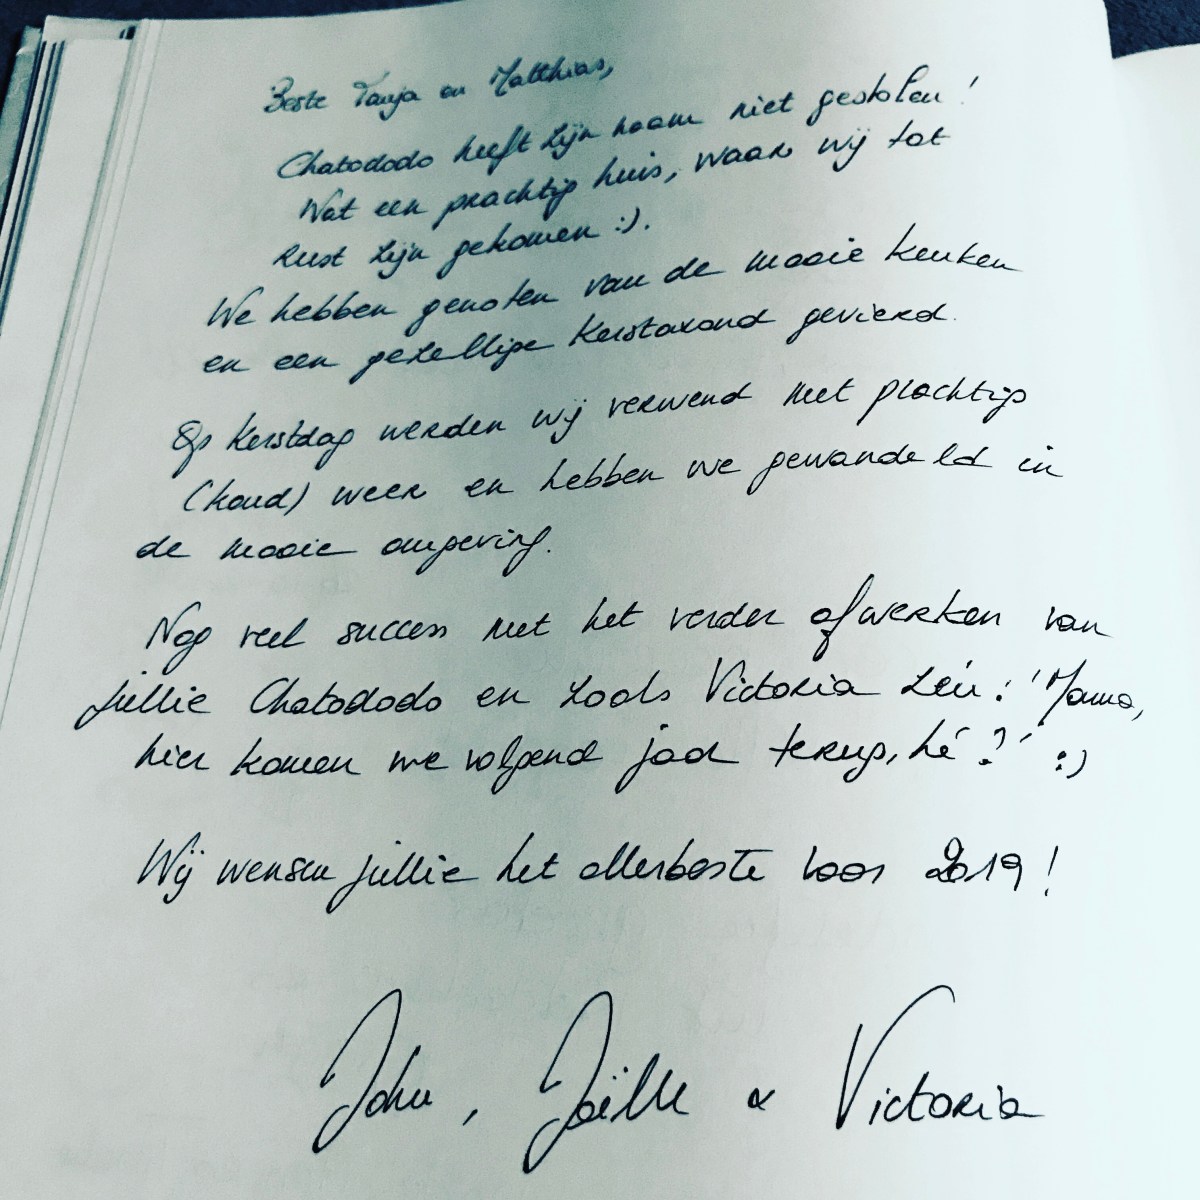 Beste Tanja en Matthias,
Chatododo heeft zijn naam niet gestolen!
Wat een prachtig huis, waar wij tot
rust zijn gekomen :).
We hebben genoten van de mooie keuken
en een gezellige Kerstavond gevierd.
Op Kerstdag werden wij verwend met prachtig
(koud) weer en hebben we gewandeld in
de mooie omgeving.
Nog veel succes met het verder afwerken van
jullie Chatododo en zoals Victoria zei: 'Mama,
hier komen we volgend jaar terug, hé?' :)
Wij wensen jullie het allerbeste voor 2019!
John, Joëlle & Victoria